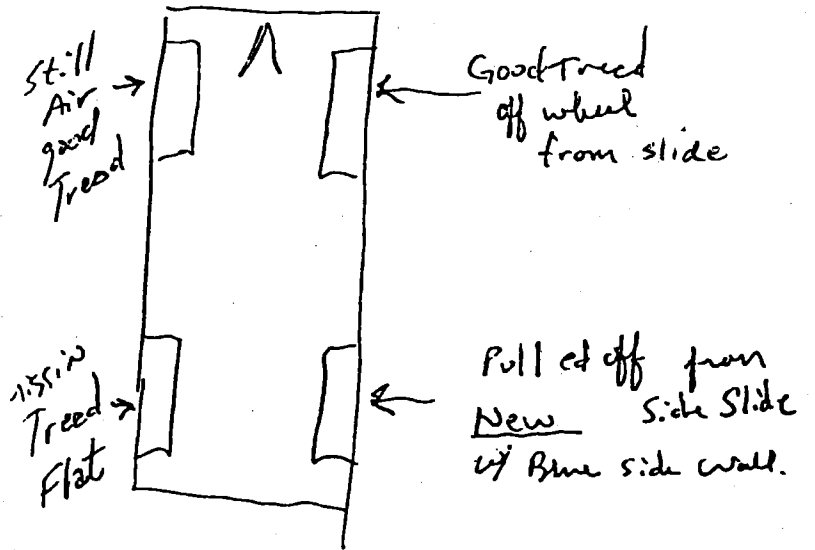 Still
Air
good
Tread
Good Treed
off wheel
from slide
missin
Treed
Flat
Pulled off from
New Side Slide
w/ Blue side wall.